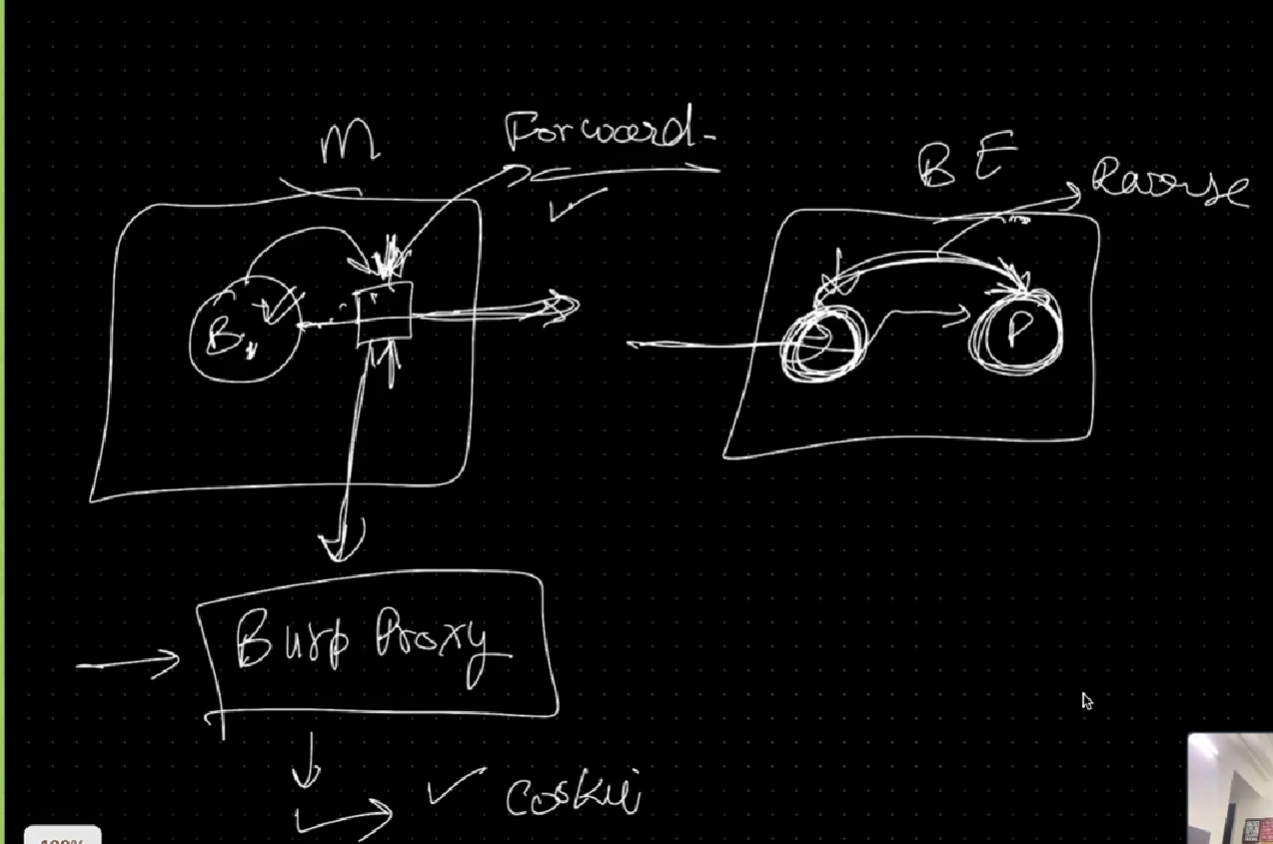 M
Forward
BE
Reverse
B
P
Burp Proxy
Cookie